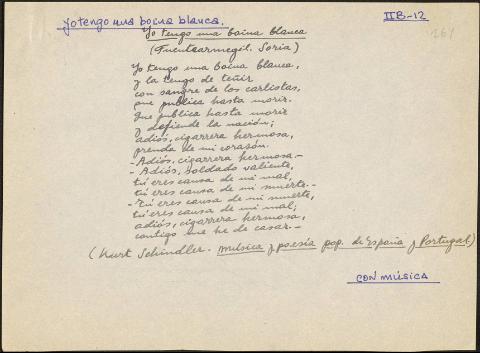 Yo tengo una boina blanca.
IIB-12
164
Yo tengo una boina blanca
(Fuentearmegil. Soria)
Yo tengo una boina blanca,
y la tengo de teñir
con sangre de los carlistas,
que publica hasta morir.
Que publica hasta morir
y defiende la nación;
adiós, cigarrera hermosa,
prenda de mi corazón.
- Adiós, cigarrera hermosa.-
- Adiós, soldado valiente,
tú eres causa de mi mal,
tú eres causa de mi muerte.-
- Tú eres causa de mi muerte,
tú eres causa de mi mal;
adiós, cigarrera hermosa,
contigo me he de casar.-
(Kurt Schindler. Música y poesía pop. de España y Portugal)
CON MÚSICA